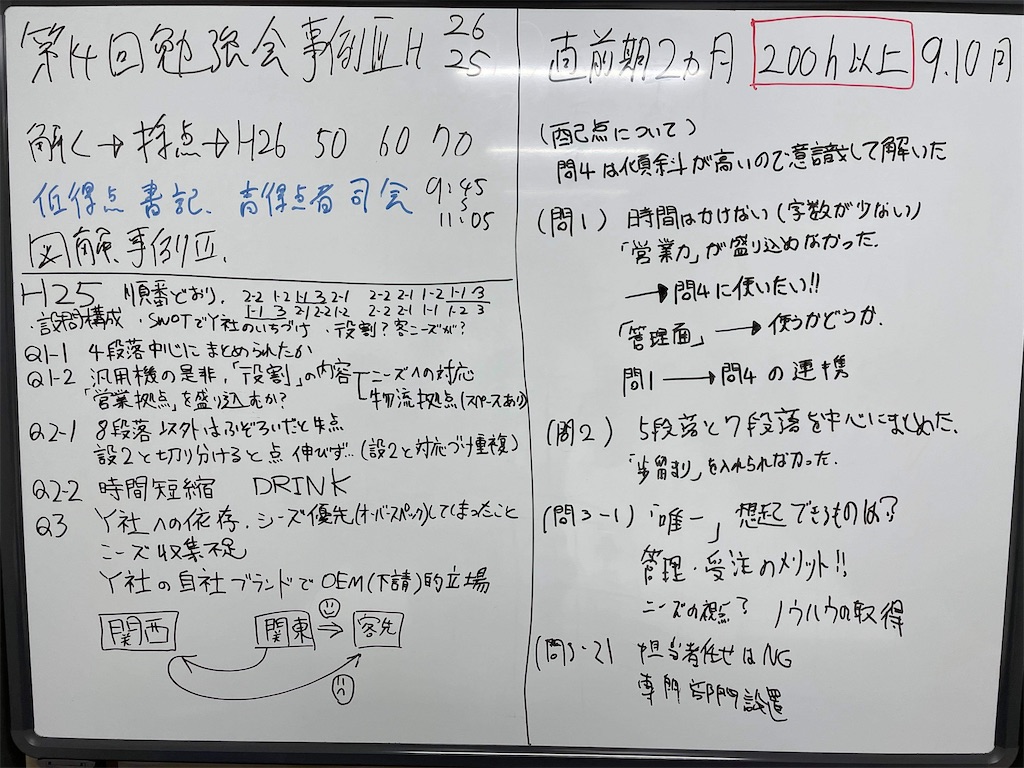 第14回勉強会事例Ⅲ H 26 25
解く→採点→H26 50 60 70
低得点 書記、高得点者 司会 9:45 〜 11:05
図解 事例Ⅲ.
H25 順番どおり. 2-2 1-2 1-1 3 2-1 2-2 2-1 1-2 1-1 3
1-1 3 2-1 2-2 1-2 2-2 2-1 1-1 1-2 3
・設問構成 ・SWOTでY社のいちづけ ・役割?客ニーズが?
Q1-1 4段落中心にまとめられたか
Q1-2 汎用機の是非,「役割」の内容 ニーズへの対応
「営業拠点」を盛り込むか? 物流拠点(スペースあり)
Q2-1 8段落以外はふぞろいだと失点
設2と切り分けると点伸びず…(設2と対応づけ重複)
Q2-2 時間短縮 DRINK
Q3 Y社への依存、シーズ優先(オーバースペック)してしまったこと
ニーズ収集不足
Y社の自社ブランドでOEM(下請)的立場
関西 関東 → 客先
直前期2ヵ月 200h以上 9.10月
(配点について)
問4は傾斜が高いので意識して解いた
(問1) 時間はかけない(字数が少ない)
「営業力」が盛り込めなかった.
→問4に使いたい!!
「管理面」→使うかどうか.
問1→問4の連携
(問2) 5段落と7段落を中心にまとめた.
「歩留まり」を入れられなかった.
(問3-1)「唯一」想起できるものは?
管理・受注のメリット!!
ニーズの視点? ノウハウの取得
(問3-2) 担当者任せはNG
専門部門設置